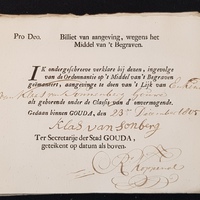 Pro Deo. Billiet van aangeving, wegens het
Middel van 't Begraven.
IK ondergeschreve verklare bij dezen, ingevolge
van de Ordonnantie op 't Middel van 't Begraven
geëmaneert, aangevinge te doen van 't Lijk van
als gehorende onder de Classis van d' onvermogende.
Gedaan binnen GOUDA, den 23 December 1805
Klaas van Sonberg
Ter Secretarije der Stad GOUDA,
geteikent op datum als boven.